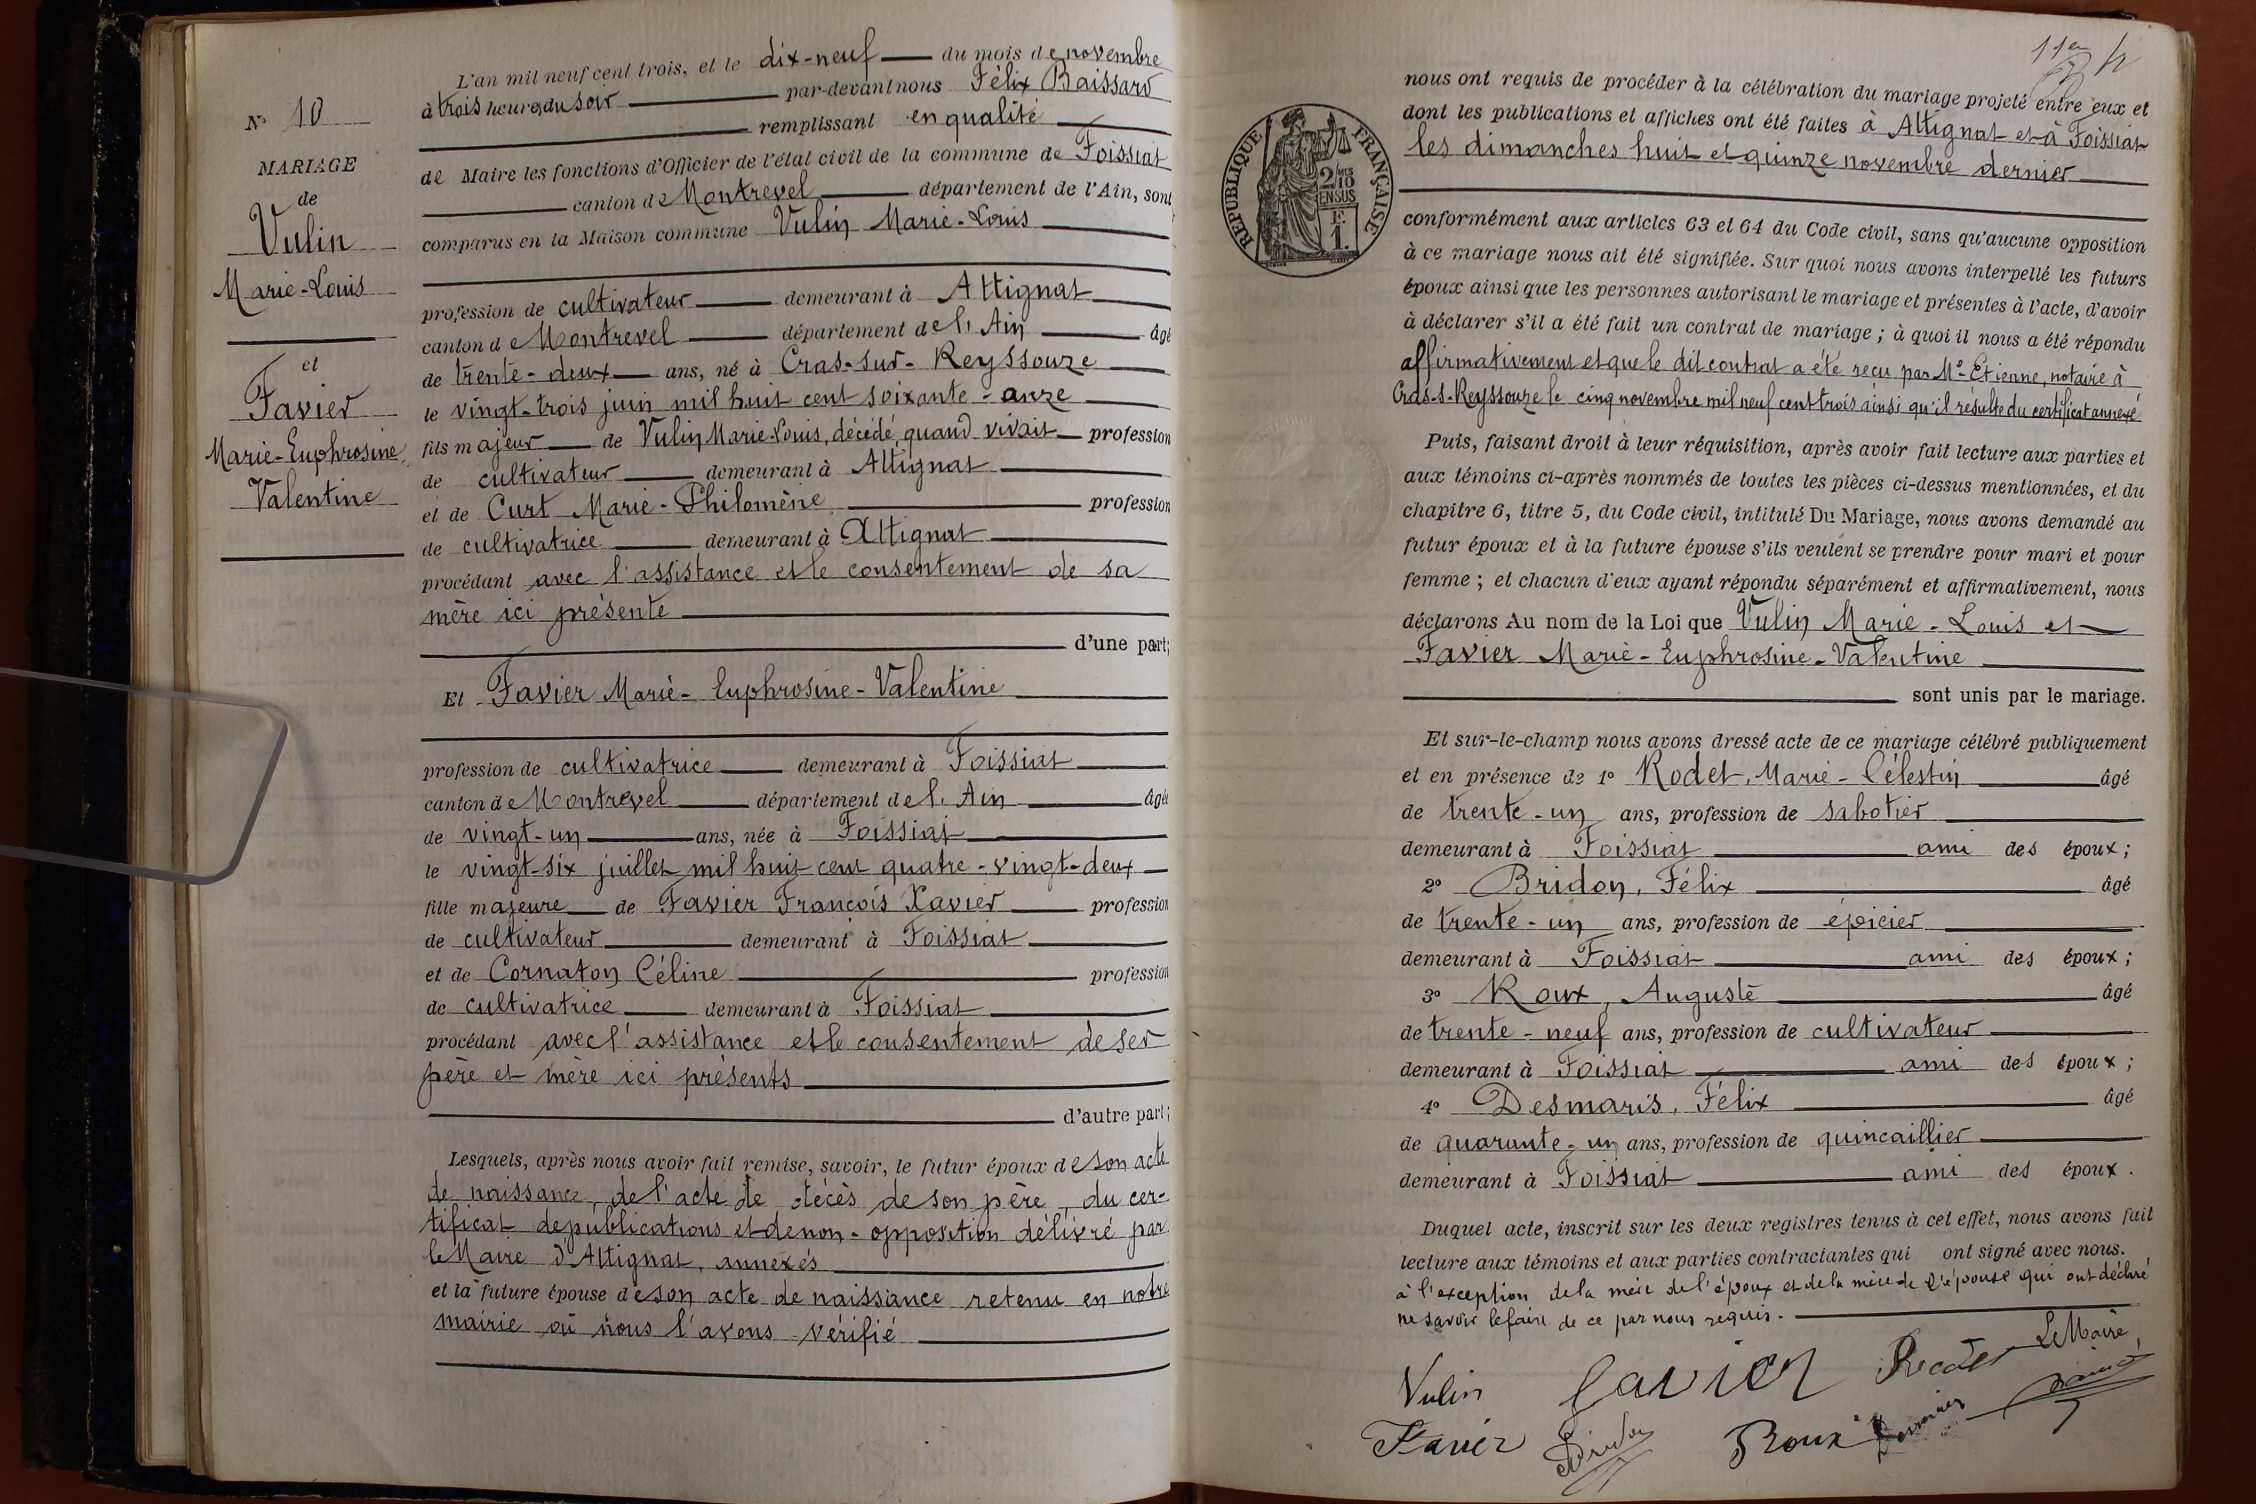 N° 10
MARIAGE
de
Vulin
Marie-Louis
et
Favier
Marie-Euphrosine
Valentine
L'an mil neuf cent trois, et le dix-neuf du mois de novembre
à trois heures du soir par-devant nous Félix Baissard
remplissant en qualité
de Maire les fonctions d'Officier de l'état civil de la commune de Foissiat
canton de Montrevel département de l'Ain, sont
comparus en la Maison commune Vulin Marie-Louis
profession de cultivateur demeurant à Attignat
canton de Montrevel département de l'Ain âgé
de trente-deux ans, né à Cras-sur-Reyssouze
le vingt-trois juin mil huit cent soixante-onze
fils majeur de Vulin Marie-Louis, décédé, quand vivait profession
de cultivateur demeurant à Attignat
et de Curt Marie-Philomène profession
de cultivatrice demeurant à Attignat
procédant avec l'assistance et le consentement de sa
mère ici présente
d'une part;
Et Favier Marie-Euphrosine-Valentine
profession de cultivatrice demeurant à Foissiat
canton de Montrevel département de l'Ain âgée
de vingt-un ans, née à Foissiat
le vingt-six juillet mil huit cent quatre-vingt-deux
fille majeure de Favier François Xavier profession
de cultivateur demeurant à Foissiat
et de Cornaton Céline profession
de cultivatrice demeurant à Foissiat
procédant avec l'assistance et le consentement de ses
père et mère ici présents
d'autre part;
Lesquels, après nous avoir fait remise, savoir, le futur époux de son acte
de naissance, de l'acte de décès de son père, du cer-
tificat de publications et de non-opposition délivré par
le Maire d'Attignat, annexés
et la future épouse de son acte de naissance retenu en notre
mairie où nous l'avons vérifié
nous ont requis de procéder à la célébration du mariage projeté entre eux et
dont les publications et affiches ont été faites à Attignat et à Foissiat
les dimanches huit et quinze novembre dernier
RÉPUBLIQUE FRANÇAISE
2/10
EN SUS
F.
1.
conformément aux articles 63 et 64 du Code civil, sans qu'aucune opposition
à ce mariage nous ait été signifiée. Sur quoi nous avons interpellé les futurs
époux ainsi que les personnes autorisant le mariage et présentes à l'acte, d'avoir
à déclarer s'il a été fait un contrat de mariage ; à quoi il nous a été répondu
affirmativement et que le dit contrat a été reçu par Me Etienne, notaire à
Cras-s-Reyssouze le cinq novembre mil neuf cent trois ainsi qu'il résulte du certificat annexé
Puis, faisant droit à leur réquisition, après avoir fait lecture aux parties et
aux témoins ci-après nommés de toutes les pièces ci-dessus mentionnées, et du
chapitre 6, titre 5, du Code civil, intitulé Du Mariage, nous avons demandé au
futur époux et à la future épouse s'ils veulent se prendre pour mari et pour
femme ; et chacun d'eux ayant répondu séparément et affirmativement, nous
déclarons Au nom de la Loi que Vulin Marie-Louis et
Favier Marie-Euphrosine-Valentine
sont unis par le mariage.
Et sur-le-champ nous avons dressé acte de ce mariage célébré publiquement
et en présence de 1° Rodet, Marie-Célestin âgé
de trente-un ans, profession de sabotier
demeurant à Foissiat ami des époux ;
2° Bridon, Félix âgé
de trente-un ans, profession de épicier
demeurant à Foissiat ami des époux ;
3° Roux, Auguste âgé
de trente-neuf ans, profession de cultivateur
demeurant à Foissiat ami des époux ;
4° Desmaris, Félix âgé
de quarante-un ans, profession de quincaillier
demeurant à Foissiat ami des époux.
Duquel acte, inscrit sur les deux registres tenus à cet effet, nous avons fait
lecture aux témoins et aux parties contractantes qui ont signé avec nous.
à l'exception de la mère de l'époux et de la mère de l'épouse qui ont déclaré
ne savoir le faire de ce par nous requis.
Vulin Favier Rodet Le Maire,
Favier Bridon Roux Desmaris